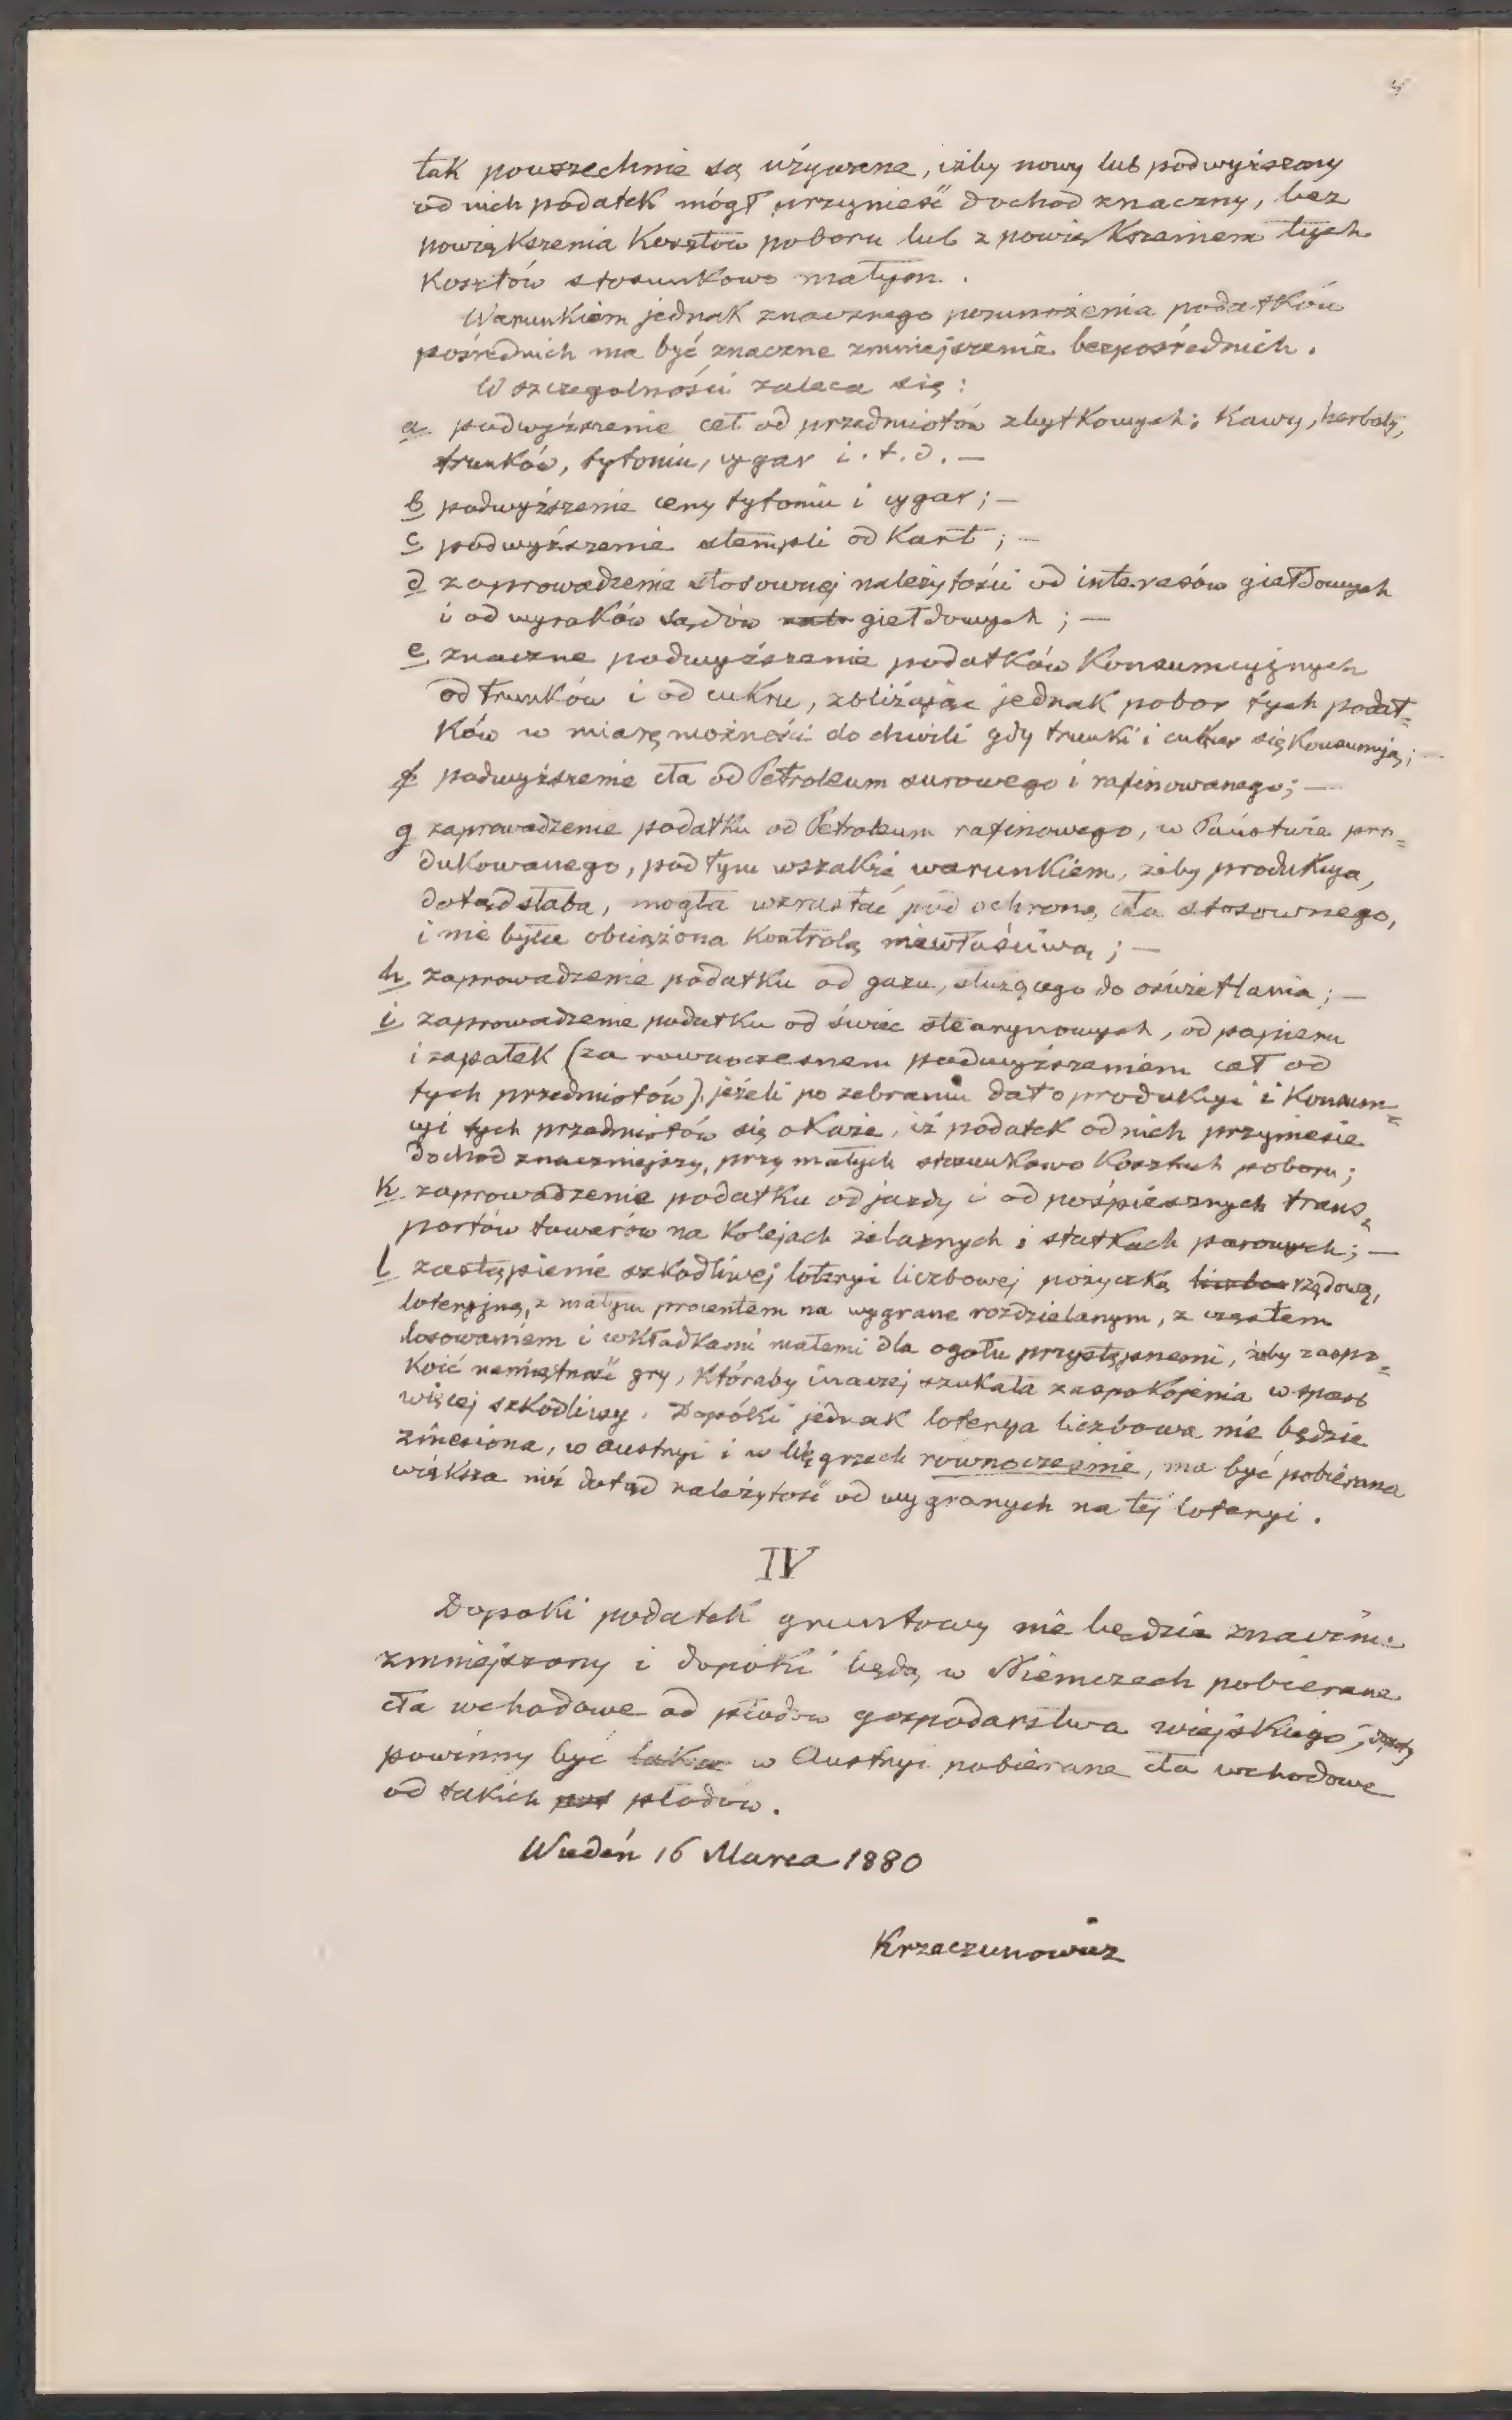 tak powszechnie są używane, iżby nowy lub podwyższony
od nich podatek mógł przynieść dochod znaczny, bez
powiększenia kosztów poboru lub z powiększeniem tych
kosztów stosunkowo małym.
Warunkiem jednak znacznego pomnożenia podatków
pośrednich ma być znaczne zmniejszenie bezpośrednich.
W szczegolności zaleca się:
a podwyższenie ceł od przedmiotów zbytkowych: Kawy, herbaty,
trunków, tytoniu, cygar i. t. d. —
b podwyższenie ceny tytoniu i cygar; —
c podwyższenie stempli od Kart; —
d zaprowadzenie stosownej należytości od interesów giełdowych
i od wyroków sądów giełdowych; —
e znaczne podwyższenie podatków Konsumcyjnych
od trunków i od cukru, zbliżając jednak pobor tych podat=
ków w miarę możności do chwili gdy trunki i cukier się Konsumują; —
f podwyższenie cła od Petroleum surowego i rafinowanego; —
g zaprowadzenie podatku od Petroleum rafinowego, w Państwie pro=
dukowanego, pod tym wszakże warunkiem, żeby produkcya,
dotąd słaba, mogła wzrastać pod ochroną cła stosownego,
i nie była obciążona Kontrolą niewłaściwą; —
h zaprowadzenie podatku od gazu, służącego do oświetlania; —
i zaprowadzenie podatku od świec stearynowych, od papieru
i zapałek (za rownoczesnem podwyższeniem ceł od
tych przedmiotów), jeżeli po zebraniu dat o produkcyi i Konsum=
cyi tych przedmiotów się okaże, iż podatek od nich przyniesie
dochod znaczniejszy, przy małych stosunkowo Kosztach poboru;
k zaprowadzenie podatku od jazdy i od pośpiesznych trans=
portów towarów na Kolejach żelaznych i statkach parowych; —
l zastąpienie szkodliwej loteryi liczbowej pożyczką rządową,
loteryjną, z małym procentem na wygrane rozdzielanym, z częstem
losowaniem i wkładkami małemi dla ogołu przystępnemi, żeby zaspo=
koić namiętność gry, któraby inaczej szukała zaspokojenia w sposob
więcej szkodliwy. Dopóki jednak loterya liczbowa nie będzie
zniesiona, w Austryi i w Węgrzech rownocześnie, ma być pobierana
większa niż dotąd należytość od wygranych na tej loteryi.
IV
Dopoki podatek gruntowy nie będzie znacznie
zmniejszony i dopoki będą w Niemczech pobierane
cła wchodowe od płodow gospodarstwa wiejskiego, dopoty
powinny być w Austryi pobierane cła wchodowe
od takich płodow.
Wiedeń 16 Marca 1880
Krzeczunowicz